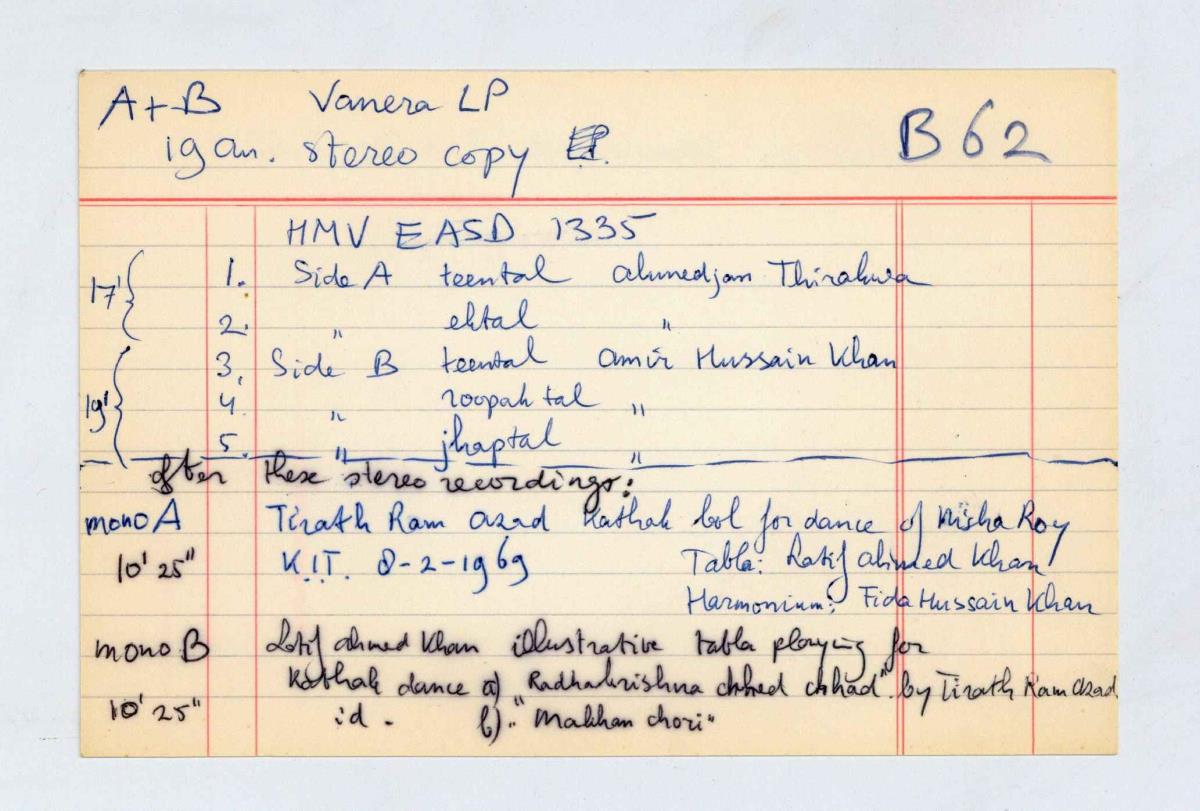 A+B Vanera LP
19 cm. stereo copy
B 62
HMV EASD 1335
17' 1. Side A teental Ahmedjan Thirakwa
2. " ektal "
19' 3. Side B teental Amir Hussain Khan
4. " roopak tal "
5. " jhaptal "
after these stereo recordings:
mono A Tirath Ram Azad Kathak bol for dance of Nisha Roy
10' 25" K.I.T. 8-2-1969 Tabla: Latif Ahmed Khan
Harmonium: Fida Hussain Khan
mono B Latif Ahmed Khan illustrative tabla playing for
Kathak dance a) "Radhakrishna chhed chhad" by Tirath Ram Azad
10' 25" id. b) "Makhan chori"